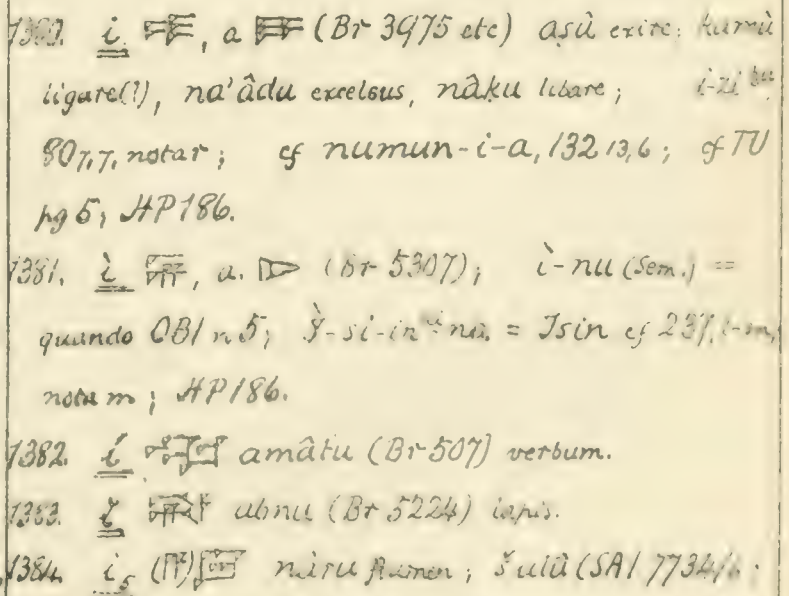 1380. i 𒄿, a (Br 3975 etc) aṣû exire; kamû
ligare(?), na'âdu excelsus, nâku libare; i-zi
807,7, notar; cf numun-i-a, 132 13,6; cf TU
pg 5; HP 186.
1381. ì 𒉌, a. (Br 5307); ì-nu (Sem.) =
quando OBI n 5; Ì-si-in na = Isin cf 237, l-m,
nota m; HP 186.
1382. í amâtu (Br 507) verbum.
1383. abnu (Br 5224) lapis.
1384. i₅ nâru flumen; šulû (SAI 7734